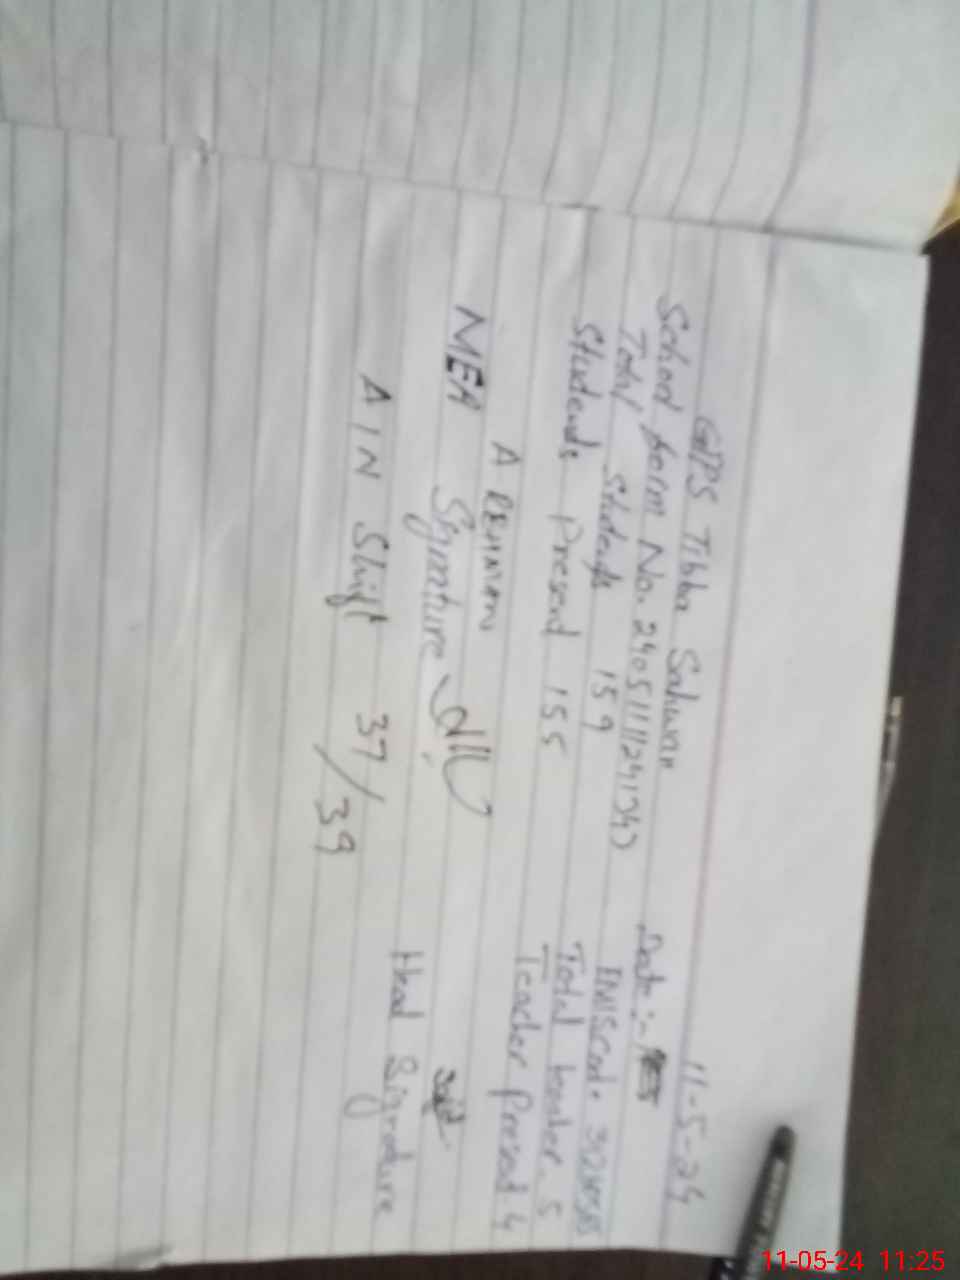 11-5-24
GPS Tibba Sahuwali
School form No. Date :-
Total Students 159 EMIS code
Students Present 155 Total teacher. 5
A REHMAN Teacher Present 4
MEA Signature
Head Signature
A I N Shift 37/39
11-05-24 11:25